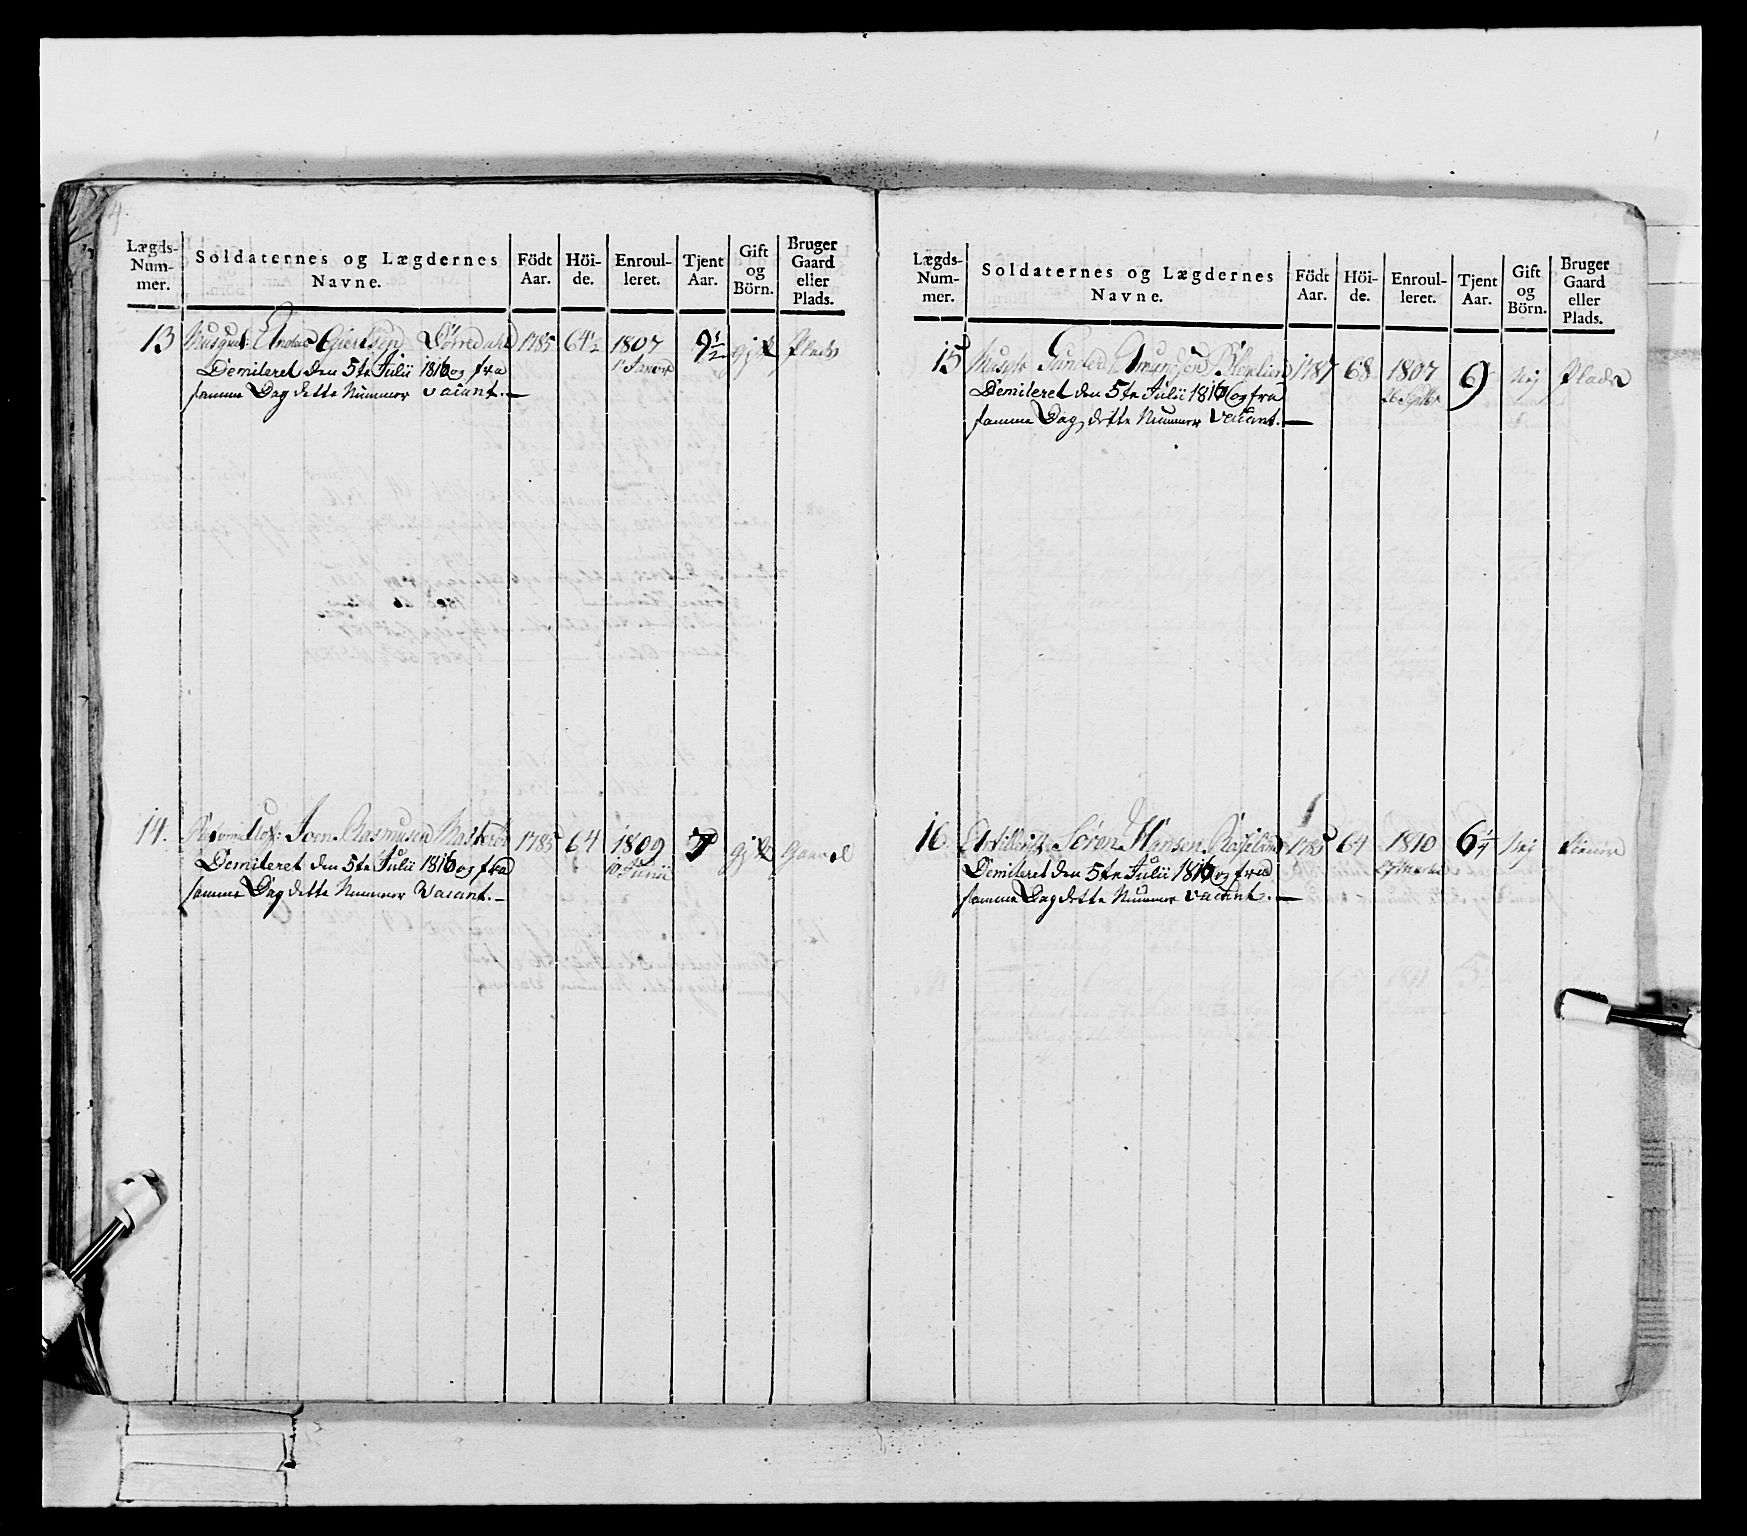 4.
Lægds-Num-mer. Soldaternes og Lægdernes Navne. Födt Aar. Höi-de. Enroul-leret. Tjent Aar. Gift og Börn. Bruger Gaard eller Plads.
13 Musquet: Anders Giertsen 1785 64½ 1807 9½ gift Plads
Demiteret den 5te Julii 1816 og fra 1 Janr
samme Dag dette Nummer vacant.—
14. Joen Rasmusen 1785 64 1809 7 gift Gaard
Demiteret den 5te Julii 1816 og fra 10 Junii
samme Dag dette Nummer Vacant.—
Lægds-Num-mer. Soldaternes og Lægdernes Navne. Födt Aar. Höi-de. Enroul-leret. Tjent Aar. Gift og Börn. Bruger Gaard eller Plads.
15 Musqt: Amundsen 1787 68 1807 9 Nej Plads
Demiteret den 5te Julii 1816 og fra 26 Septbr
samme Dag dette Nummer Vacant.—
16 Artillerist Søren Hansen 1785 64 1810 6¼ Nej
Demiteret den 5te Julii 1816 og fra
samme Dag dette Nummer vacant.—